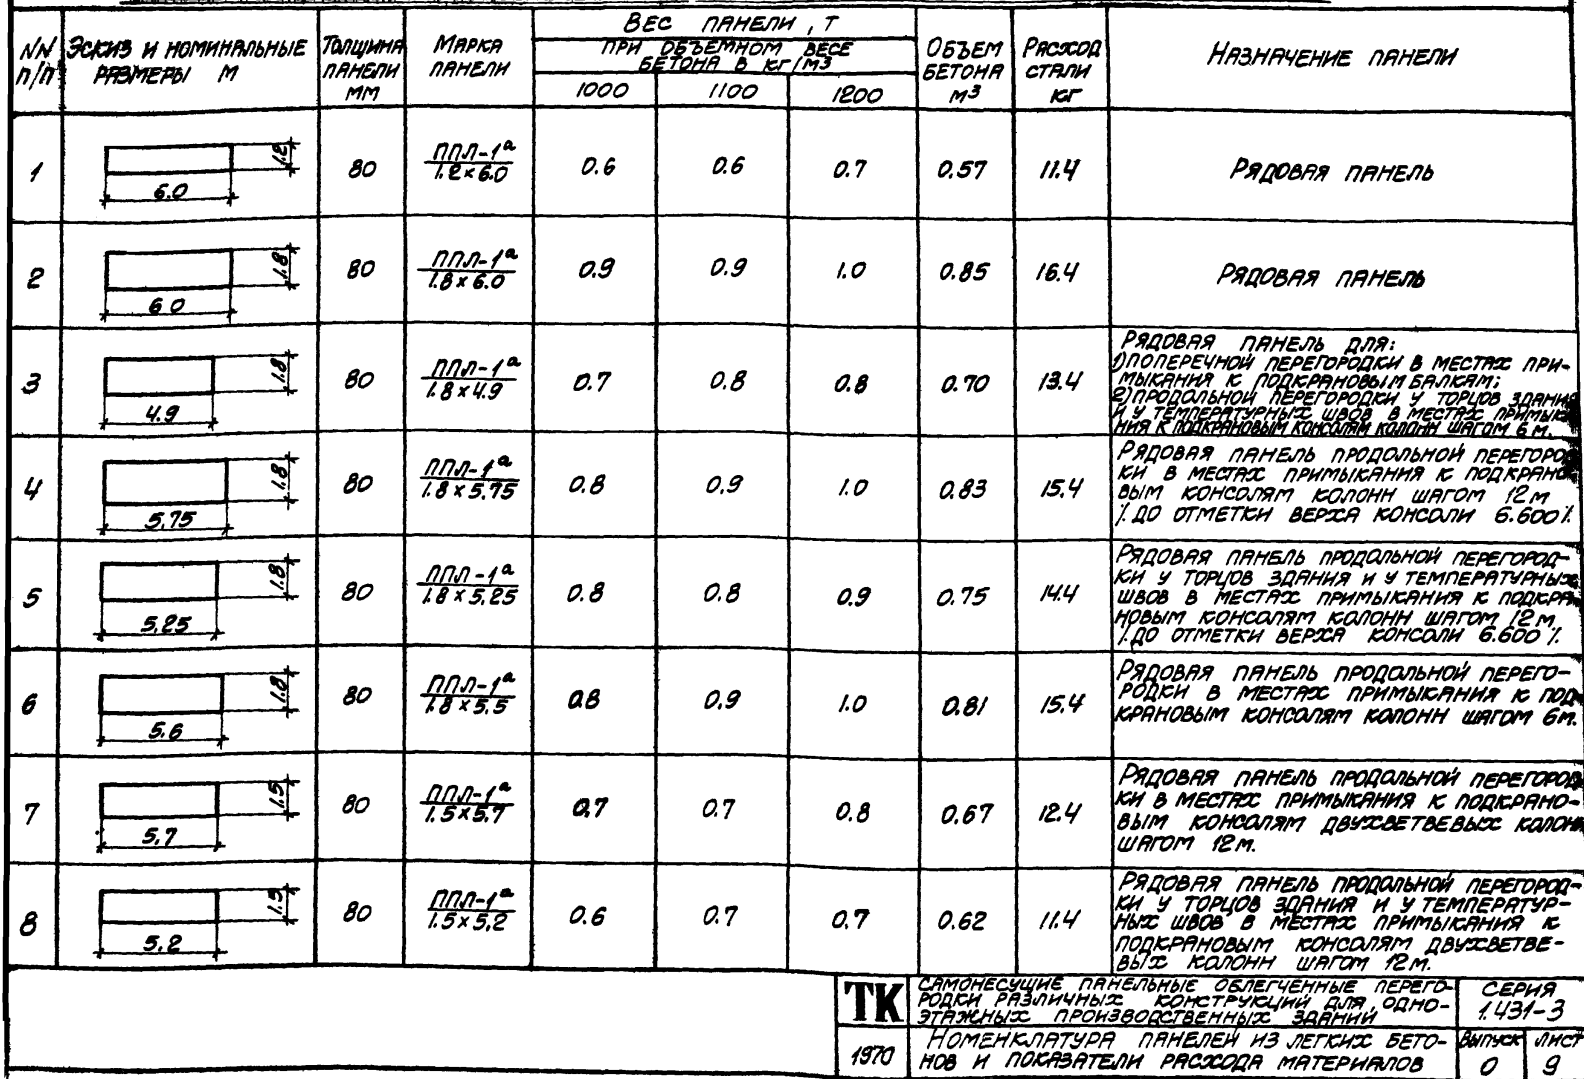 NN п/п
Эскиз и номинальные размеры м
Толщина панели мм
Марка панели
Вес панели, т
при объемном весе бетона в кг/м3
1000 1100 1200
Объем бетона м3
Расход стали кг
Назначение панели
1
1.2
6.0
80
ППЛ-1а
1.2×6.0
0.6 0.6 0.7 0.57 11.4
Рядовая панель
2
1.8
6.0
80
ППЛ-1а
1.8×6.0
0.9 0.9 1.0 0.85 16.4
Рядовая панель
3
1.8
4.9
80
ППЛ-1а
1.8×4.9
0.7 0.8 0.8 0.70 13.4
Рядовая панель для:
1) поперечной перегородки в местах при-
мыкания к подкрановым балкам;
2) продольной перегородки у торцов здания
и у температурных швов в местах примыка-
ния к подкрановым консолям колонн шагом 6 м.
4
1.8
5.75
80
ППЛ-1а
1.8×5.75
0.8 0.9 1.0 0.83 15.4
Рядовая панель продольной перегород-
ки в местах примыкания к подкрано-
вым консолям колонн шагом 12м
/. до отметки верха консоли 6.600 /.
5
1.8
5.25
80
ППЛ-1а
1.8×5.25
0.8 0.8 0.9 0.75 14.4
Рядовая панель продольной перегород-
ки у торцов здания и у температурных
швов в местах примыкания к подкра-
новым консолям колонн шагом 12м
/. до отметки верха консоли 6.600 /.
6
1.8
5.6
80
ППЛ-1а
1.8×5.5
0.8 0.9 1.0 0.81 15.4
Рядовая панель продольной перего-
родки в местах примыкания к под-
крановым консолям колонн шагом 6м.
7
1.5
5.7
80
ППЛ-1а
1.5×5.7
0.7 0.7 0.8 0.67 12.4
Рядовая панель продольной перегород-
ки в местах примыкания к подкрано-
вым консолям двухветвевых колонн
шагом 12м.
8
1.5
5.2
80
ППЛ-1а
1.5×5.2
0.6 0.7 0.7 0.62 11.4
Рядовая панель продольной перегород-
ки у торцов здания и у температур-
ных швов в местах примыкания к
подкрановым консолям двухветве-
вых колонн шагом 12м.
ТК
1970
Самонесущие панельные облегченные перего-
родки различных конструкций для одно-
этажных производственных зданий
Номенклатура панелей из легких бето-
нов и показатели расхода материалов
Серия
1.431-3
Выпуск
0
Лист
9